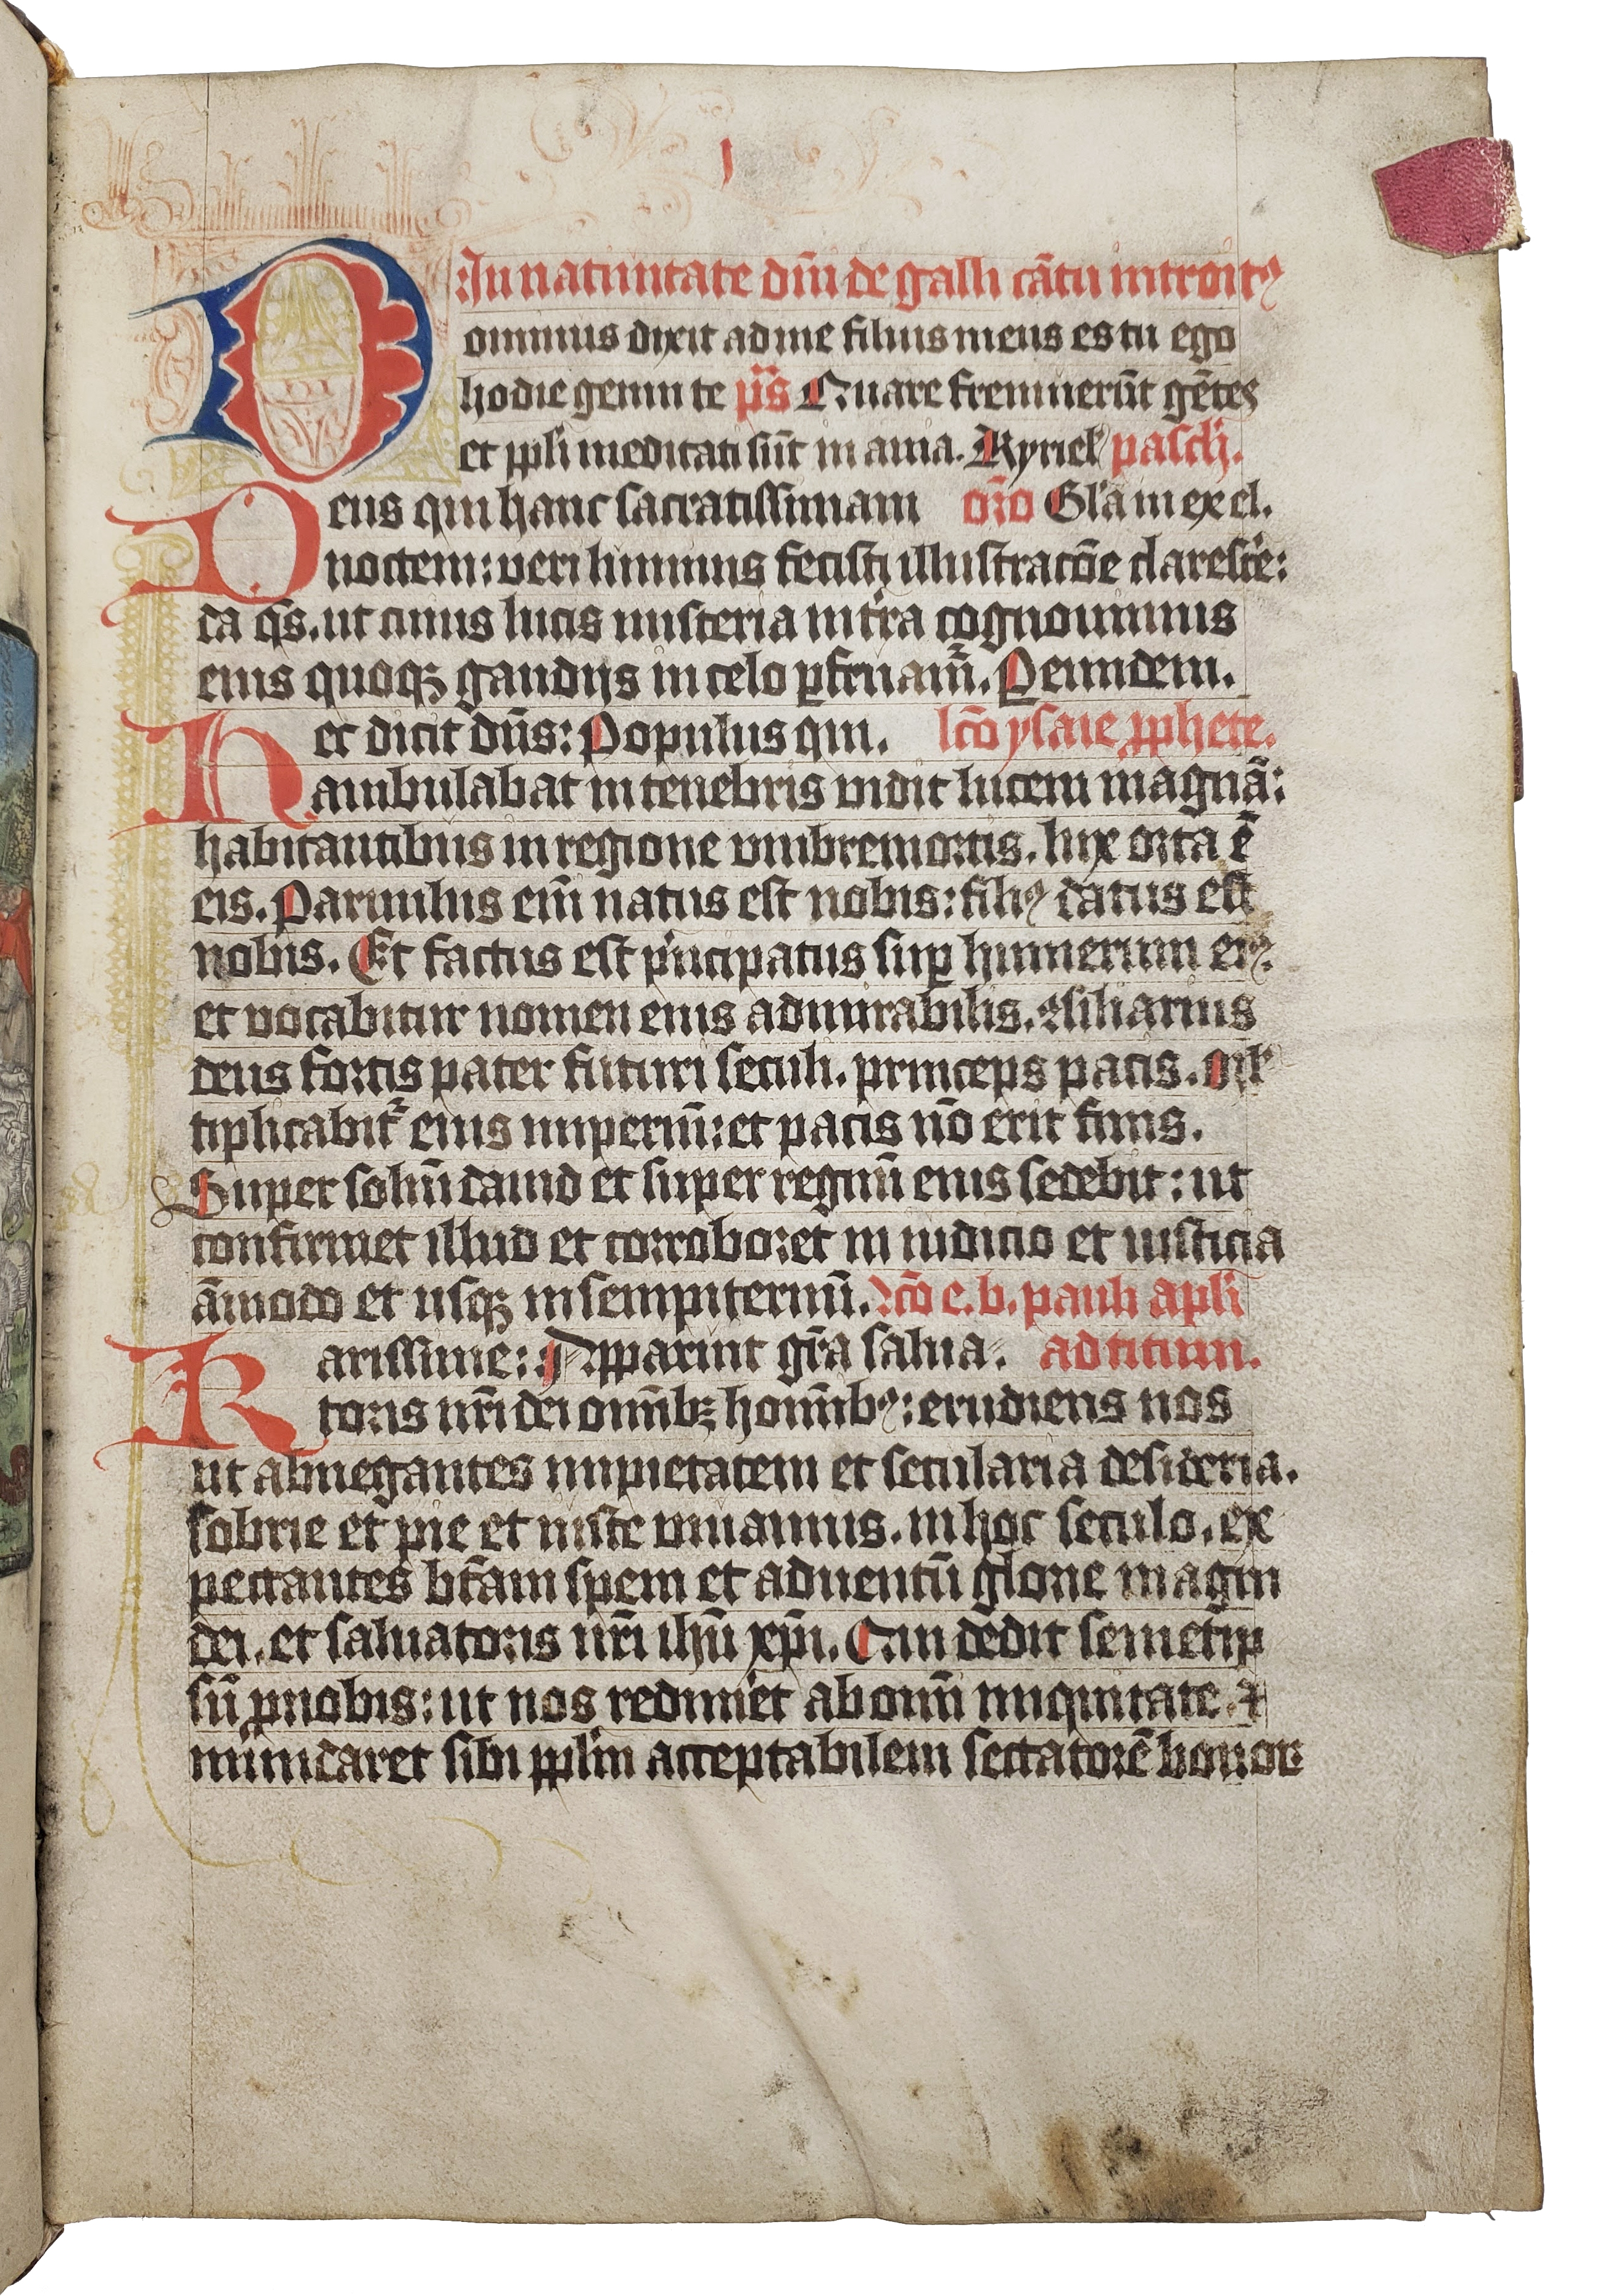 I
In natiuitate dñi de galli cãtu introitꝰ
Dominus dixit ad me filius meus es tu ego
hodie genui te p̃s Quare fremuerũt gẽtes
et ppl̃i meditati sũt in ania. Kyriel pasch̃.
Deus qui hanc sacratissimam oro Gl̃a in excel.
noctem: veri luminis fecisti illustracõe claresc̃e:
da q̃s. ut cuius lucis misteria in t̃ra cognouimus
eius quoqꝫ gaudijs in celo ꝑfruam̃. Per eundem.
Hec dicit dñs: Populus qui. lcõ ysaie ꝓphete.
ambulabat in tenebris vidit lucem magnã:
habitantibus in regione vmbre mortis. lux orta ẽ
eis. Paruulus eni᷈ natus est nobis: filiꝰ datus est
nobis. Et factus est p̃ncipatus suꝑ humerum eiꝰ.
et vocabitur nomen eius admirabilis. Asiliarius
deus fortis pater futuri seculi. princeps pacis. Ml̃
tiplicabit᷑ eius imperiũ: et pacis nõ erit finis.
Super soliũ dauid et super regnũ eius sedebit: ut
confirmet illud et corroboret in iudicio et iusticia
ãmodo et usqꝫ in sempiternũ. lcõ e. b. pauli apl̃i
Karissime: Apparuit gr̃a salua⸗. ad titum.
toris nr̃i dei omĩbꝫ homĩbꝰ: erudiens nos
ut abnegantes impietatem et secularia desideria.
sobrie et pie et iuste viuamus. in hoc seculo. ex
pectantes bt̃am spem et aduentũ glorie magni
dei. et saluatoris nr̃i ihũ xp̃i. Qui dedit semetip
sũ ꝓ nobis: ut nos redim̃et ab om̃i iniquitate. ⁊
mundaret sibi ppl̃m acceptabilem sectatorẽ bonoꝝ